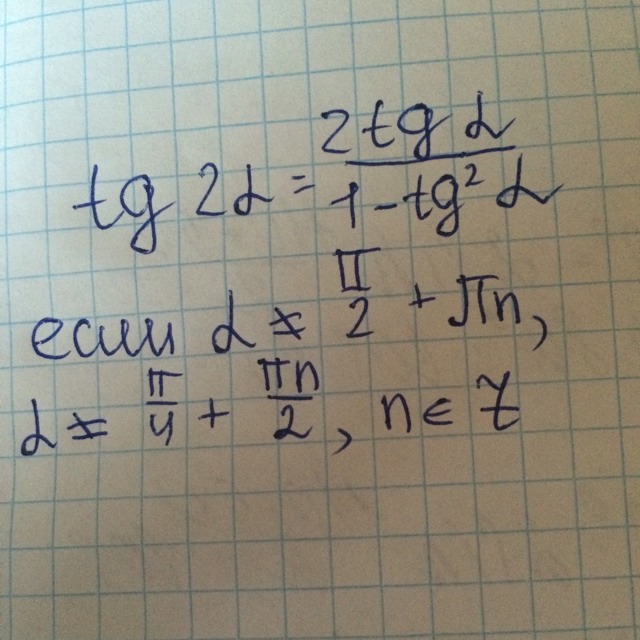 tg 2α = 2tg α / 1 - tg² α
если α ≠ π/2 + πn,
α ≠ π/4 + πn/2, n ∈ Z